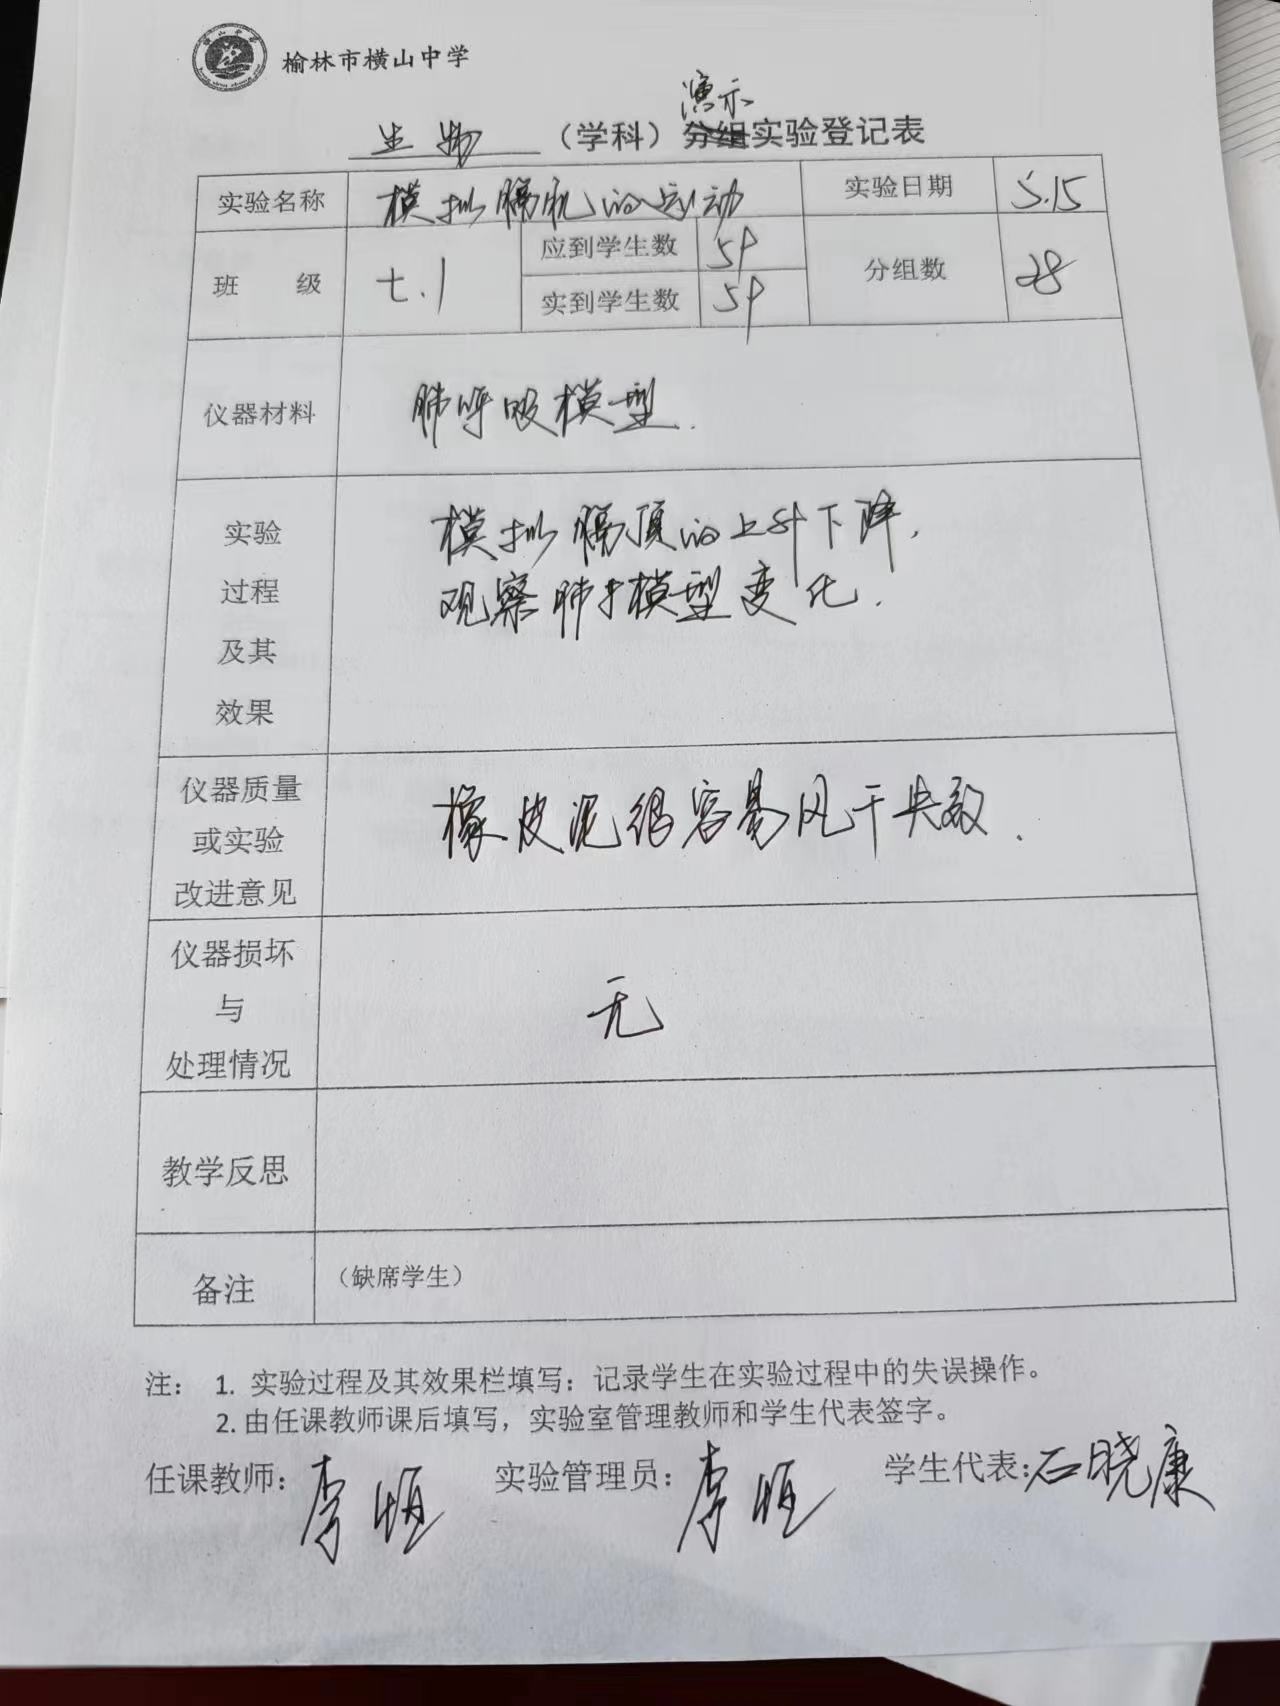 榆林市横山中学
演示
生物（学科）分组实验登记表
实验名称 模拟膈肌的运动 实验日期 5.15
班 级 七.1 应到学生数 59 分组数 28
实到学生数 59
仪器材料 肺呼吸模型.
实验过程及其效果
模拟膈顶的上升下降,
观察肺模型变化.
仪器质量或实验改进意见
橡皮泥很容易风干失效.
仪器损坏与处理情况
无
教学反思
备注 （缺席学生）
注： 1. 实验过程及其效果栏填写：记录学生在实验过程中的失误操作。
2. 由任课教师课后填写，实验室管理教师和学生代表签字。
任课教师：李恒 实验管理员：李恒 学生代表：石晓康